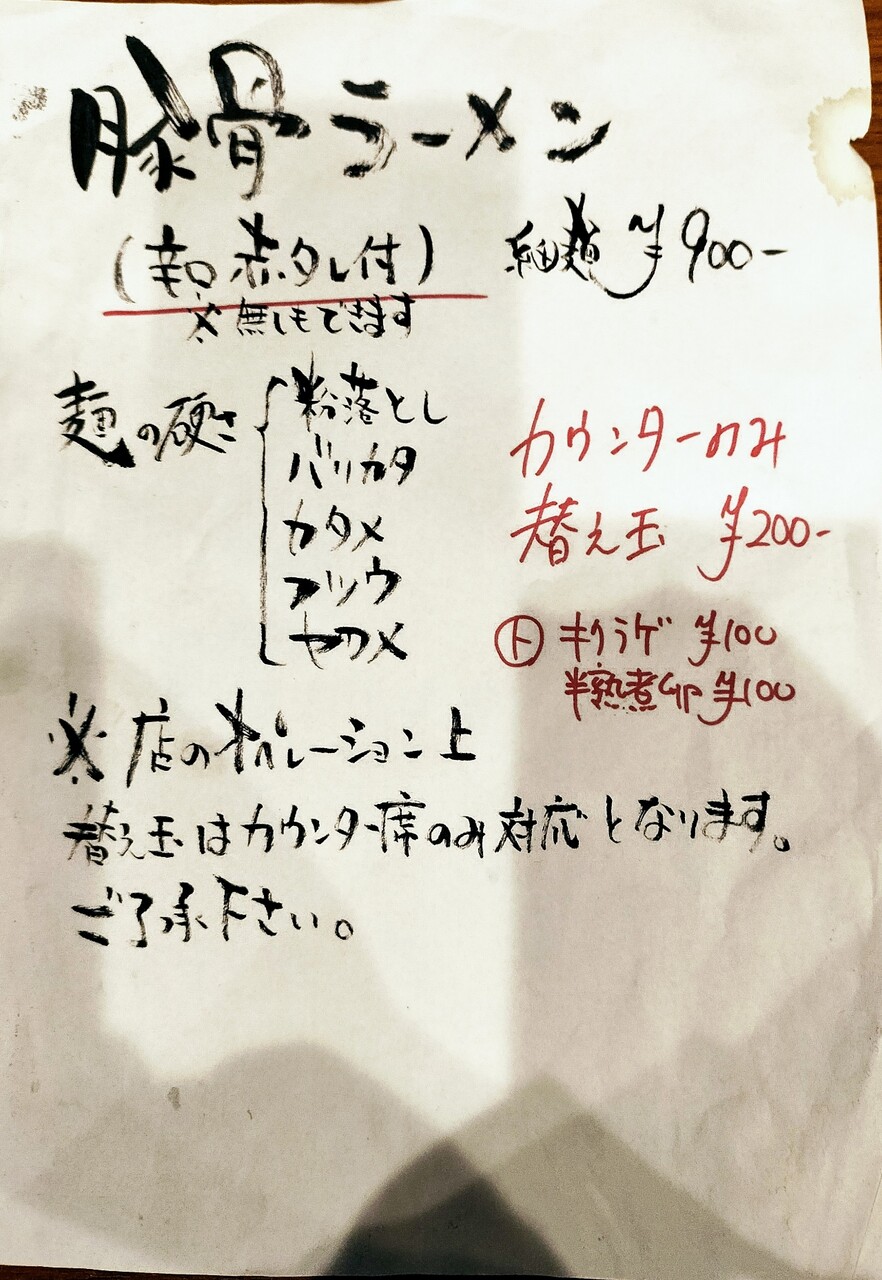 豚骨ラーメン
(辛口 赤タレ付) 細麺 ¥900-
※無しもできます
麺の硬さ
粉落とし
バリカタ
カタメ
フツウ
ヤワメ
カウンターのみ
替え玉 ¥200-
ト キクラゲ ¥100
半熟煮卵 ¥100
※店のオペレーション上
替え玉はカウンター席のみ対応となります。
ご了承下さい。